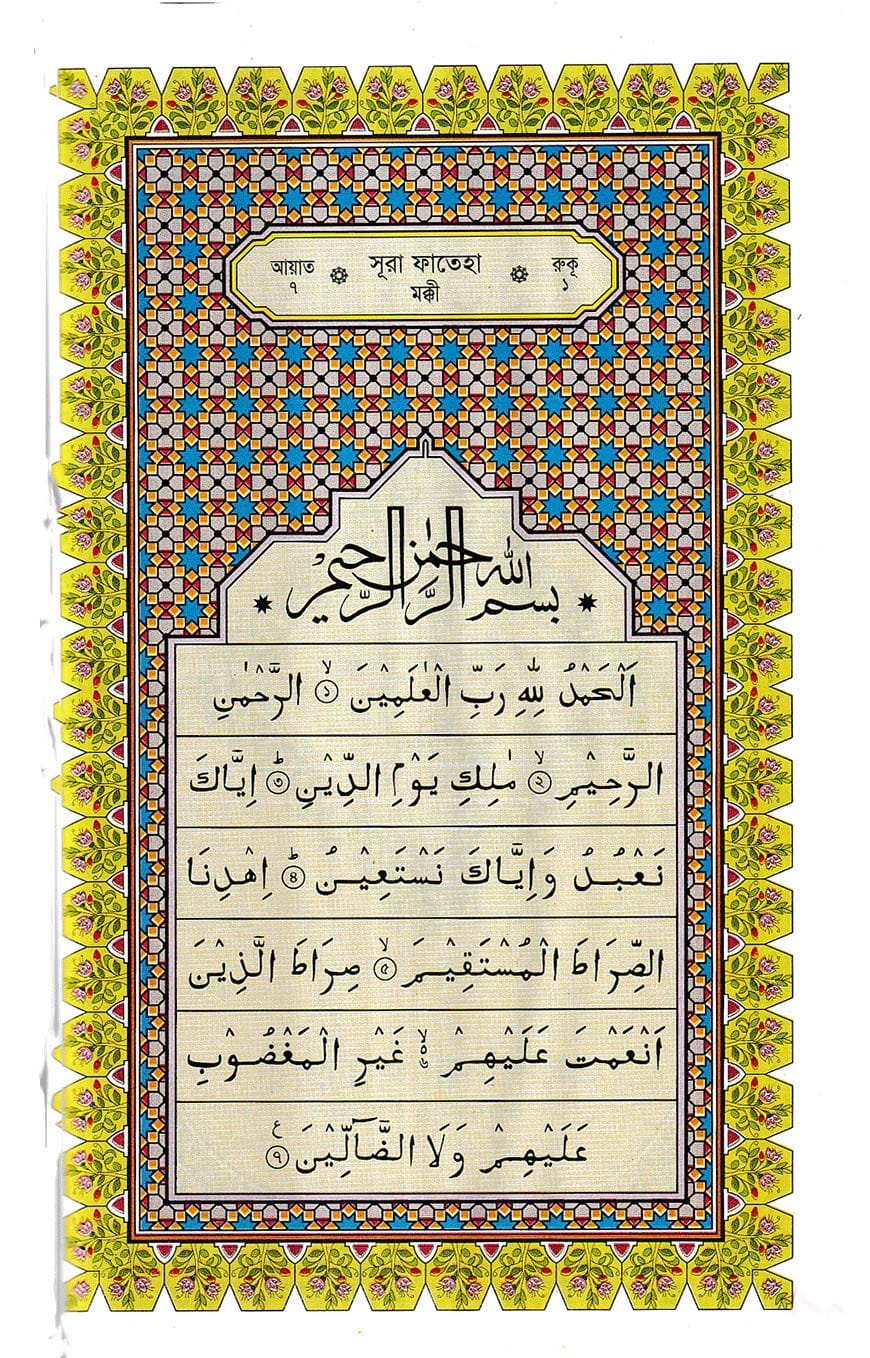 আয়াত ۞ সূরা ফাতেহা ۞ রুকু
৭ মক্কী ১
بسم الله الرحمٰن الرحيم
اَلْحَمْدُ لِلّٰهِ رَبِّ الْعٰلَمِيْنَ ۙ‏﴿۱﴾ الرَّحْمٰنِ
الرَّحِيْمِ ۙ‏﴿۲﴾ مٰلِكِ يَوْمِ الدِّيْنِ ؕ‏﴿۳﴾ اِيَّاكَ
نَعْبُدُ وَاِيَّاكَ نَسْتَعِيْنُ ؕ‏﴿۴﴾ اِهْدِنَا
الصِّرَاطَ الْمُسْتَقِيْمَ ۙ‏﴿۵﴾ صِرَاطَ الَّذِيْنَ
اَنْعَمْتَ عَلَيْهِمْ ۙ۬ غَيْرِ الْمَغْضُوْبِ
عَلَيْهِمْ وَلَا الضَّآلِّيْنَ ﴿۹﴾ ع